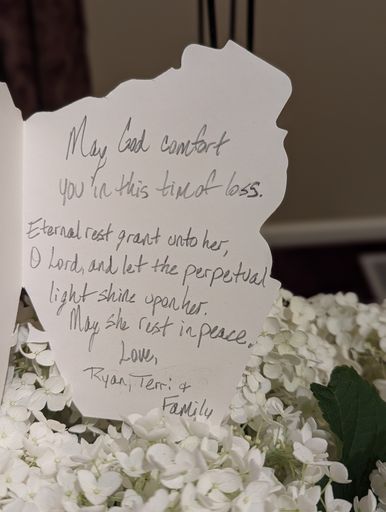 May God comfort
you in this tim of loss.
Eternal rest grant unto her,
O Lord, and let the perpetual
light shine upon her.
May she rest in peace.
Love,
Ryan, Terri &
Family